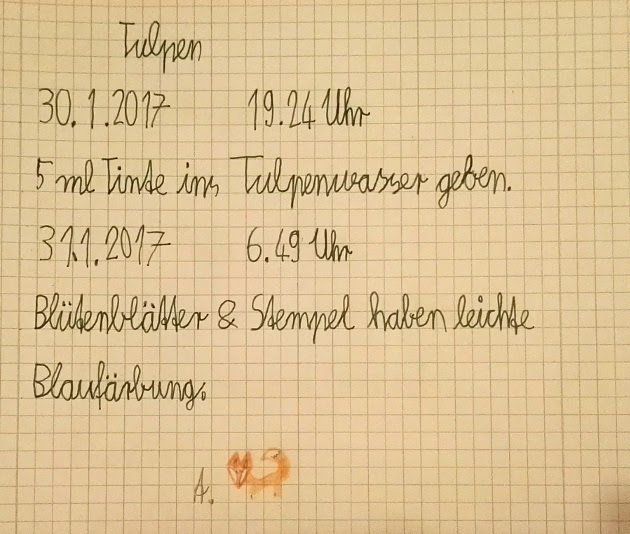 Tulpen
30.1.2017 19.24 Uhr
5 ml Tinte ins Tulpenwasser geben.
31.1.2017 6.49 Uhr
Blütenblätter & Stempel haben leichte
Blaufärbung.
A.